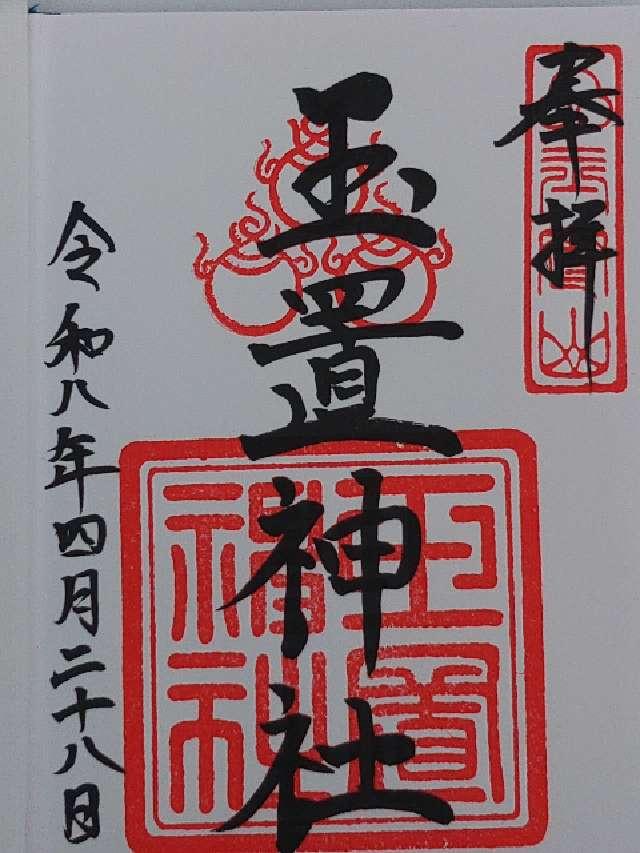 奉拝
玉置神社
令和八年四月二十八日